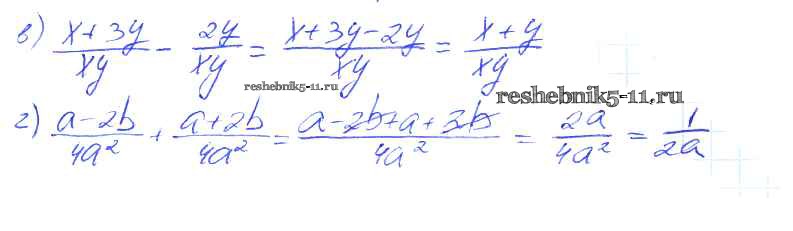 в) (x+3y)/(xy) - (2y)/(xy) = (x+3y-2y)/(xy) = (x+y)/(xy)
reshebnik5-11.ru
reshebnik5-11.ru
г) (a-2b)/(4a²) + (a+2b)/(4a²) = (a-2b+a+2b)/(4a²) = (2a)/(4a²) = 1/(2a)